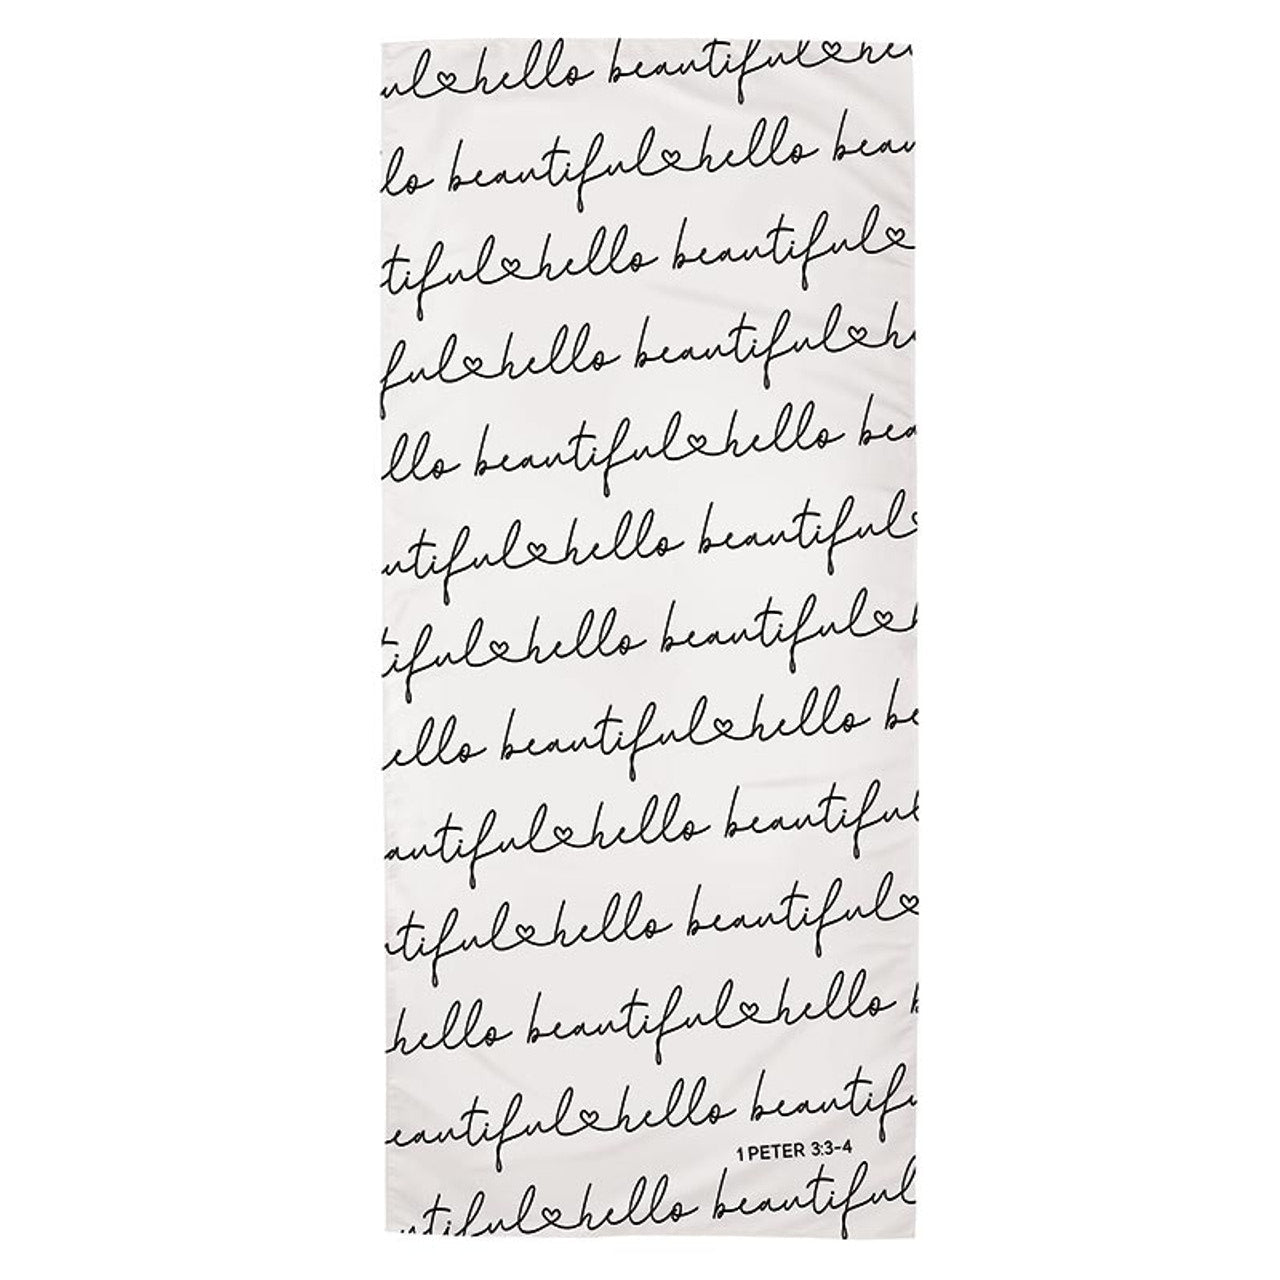 ul hello beautiful he
lo beautiful hello beau
tiful hello beautiful
ful hello beautiful h
llo beautiful hello bea
utiful hello beautiful
tiful hello beautiful h
ello beautiful hello be
autiful hello beautiful
utiful hello beautiful
hello beautiful hello b
eautiful hello beautifu
1 PETER 3:3-4
utiful hello beautiful